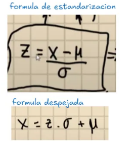 formula de estandarizacion
Z = x - μ / σ =>
formula despejada
x = z . σ + μ